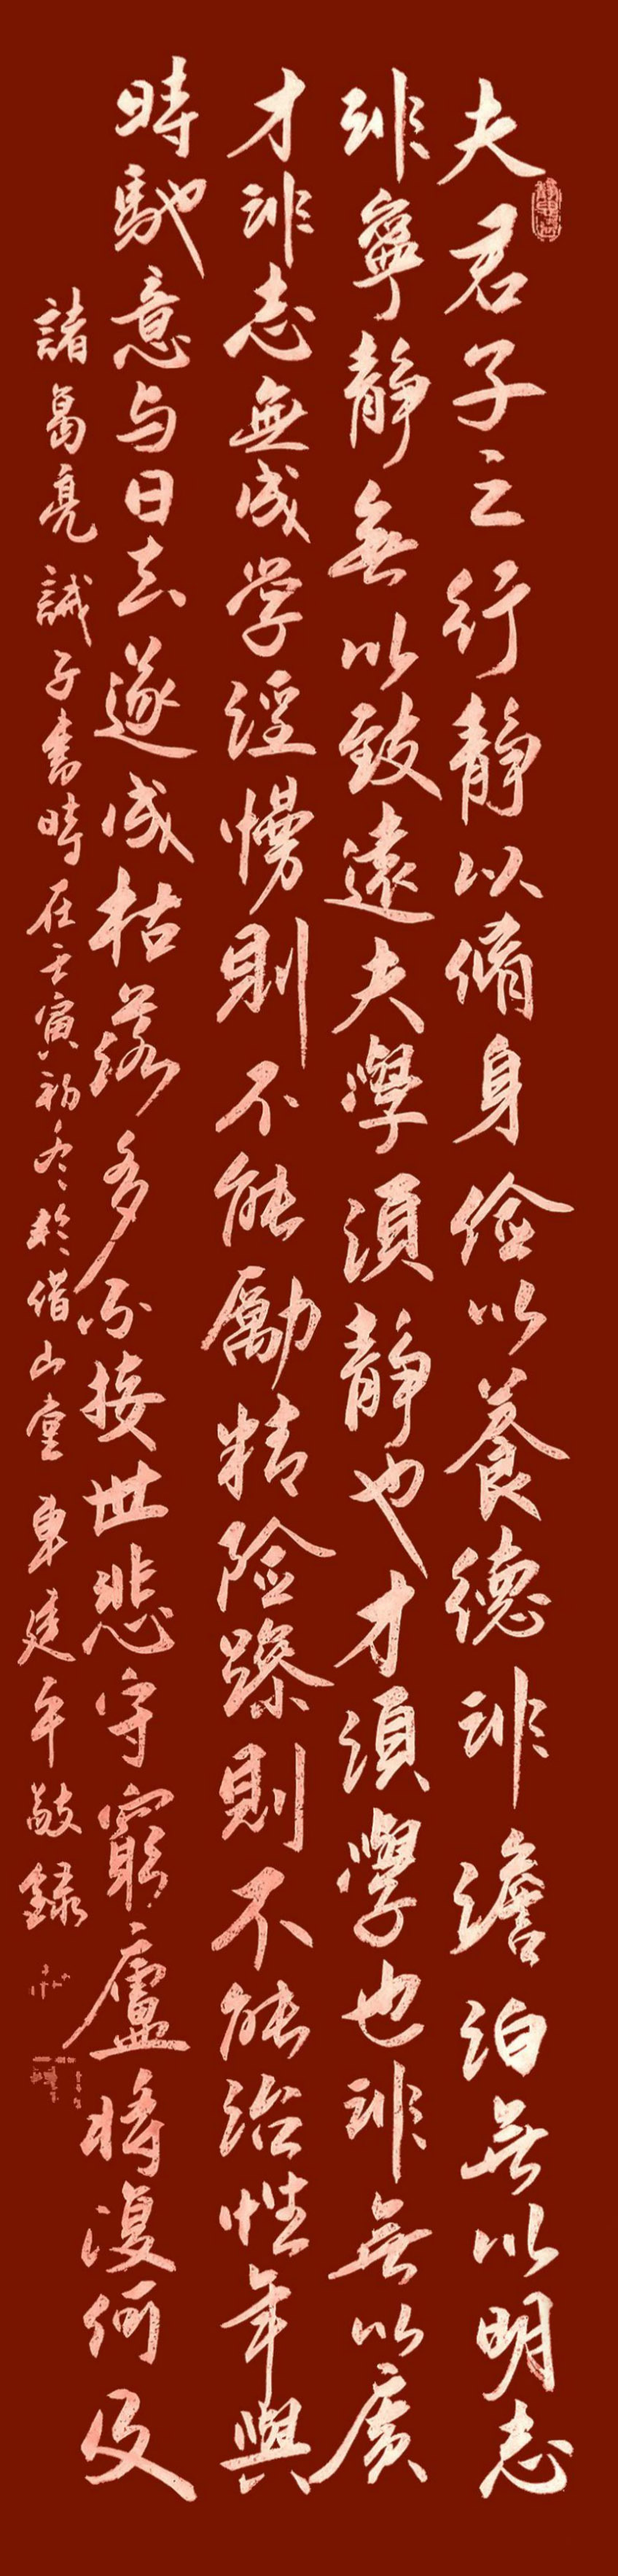 夫君子之行静以脩身俭以養德非澹泊無以明志
非寧静無以致遠夫學須静也才須學也非無以廣
才非志無成学淫慢則不能勵精险躁則不能治性年與
時馳意与日去遂成枯落多不接世悲守窮廬將復何及
諸葛亮誡子書時在壬寅初冬於借山堂車建敬録